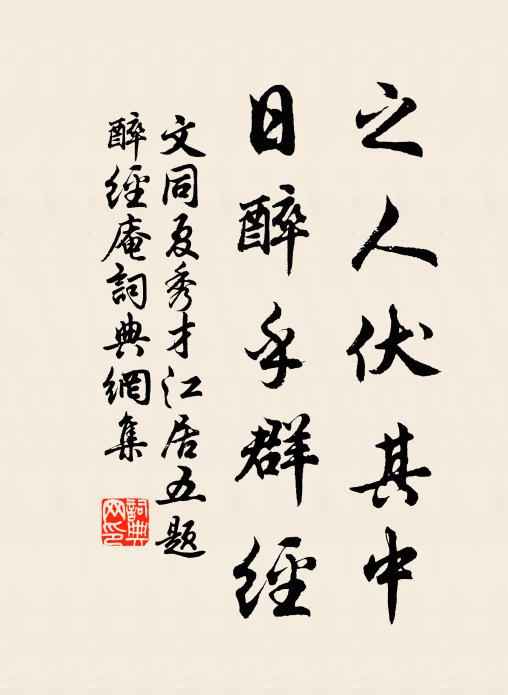 之人伏其中
日醉乎群經
文同夏秀才江居五题
醉經庵詞典網集
詞典网印